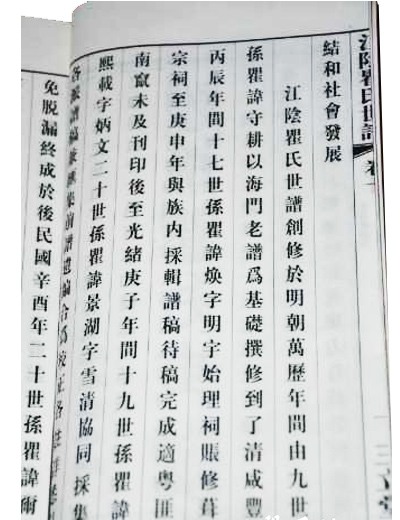 江陰瞿氏世譜 卷一
結和社會發展
江陰瞿氏世譜創修於明朝萬歷年間由九世
孫瞿諱守耕以海門老譜爲基礎撰修到了清咸豐
丙辰年間十七世孫瞿諱煥字明字始理祠賬修葺
宗祠至庚申年與族内採輯譜稿待稿完成適粵匪
南竄未及刊印後至光緒庚子年間十九世孫瞿諱
熙載字炳文二十世孫瞿諱景湖字雪清協同採集
各譜稿集前譜遺合爲校正各
免脱漏終成於後民國辛酉年二十世孫瞿諱術